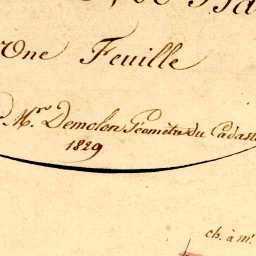 One Feuille
Mr Demolon Géomètre du Cadast
1829
ch. à m.